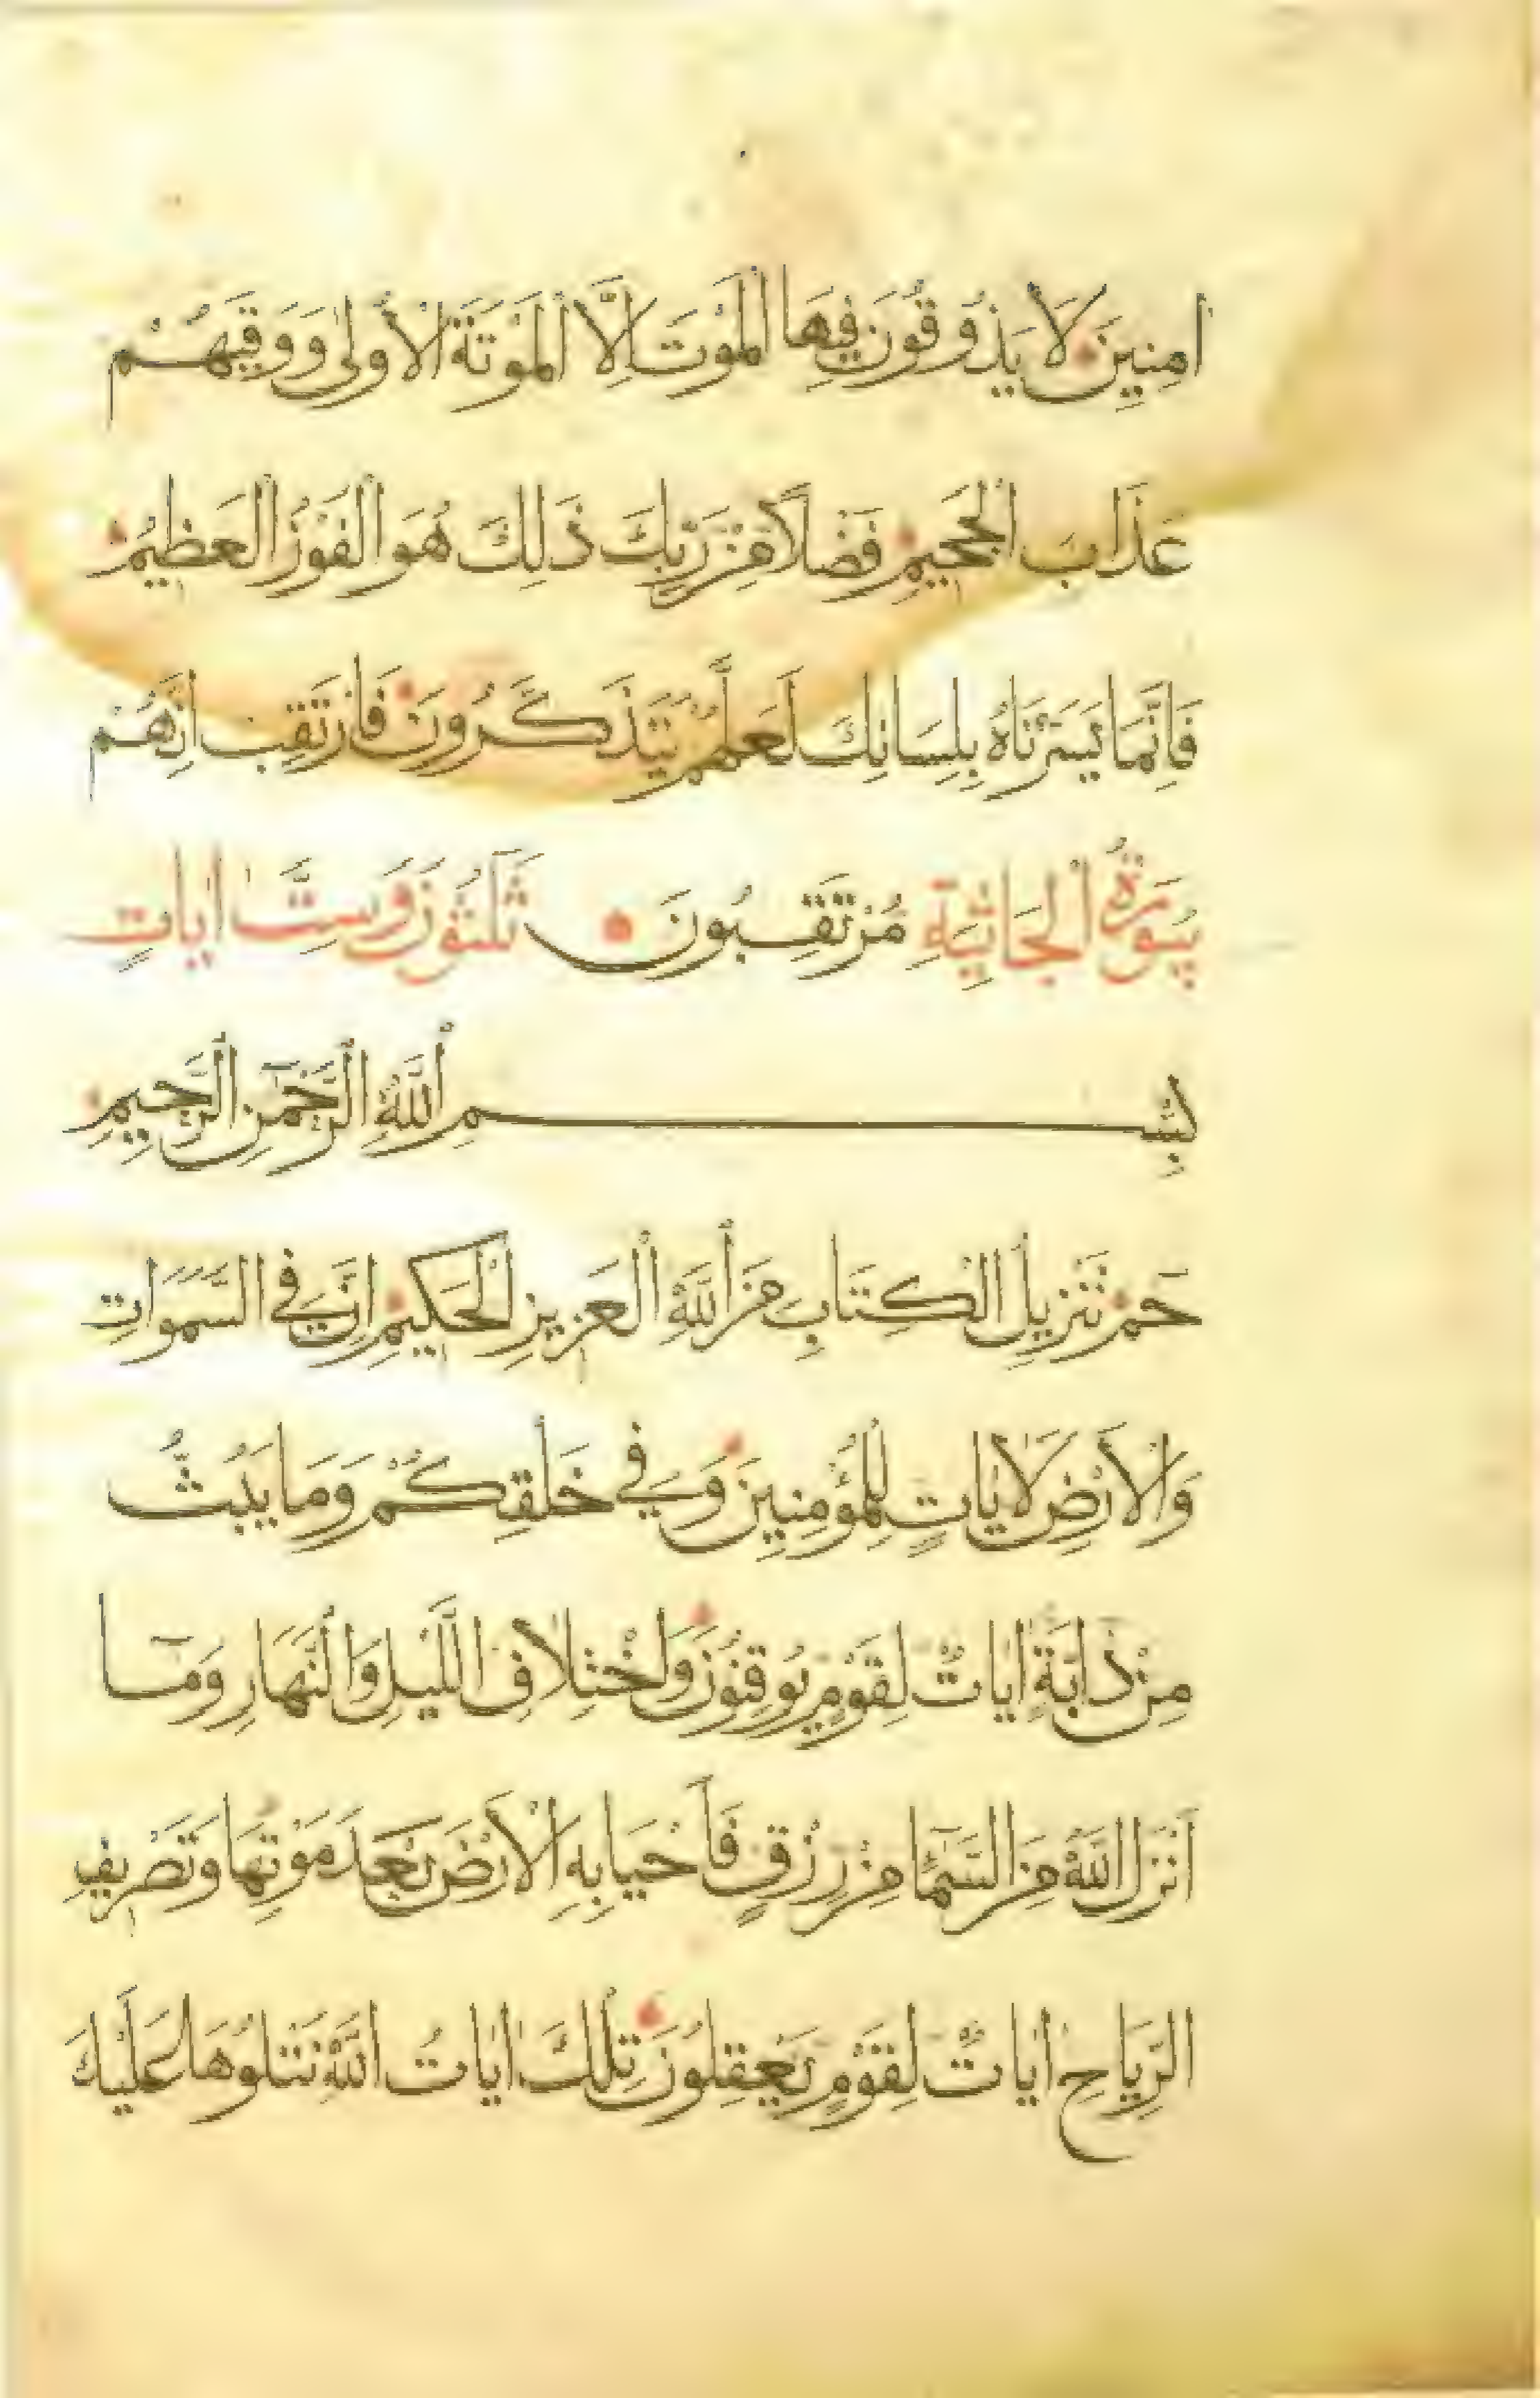 اٰمِنِينَ لَا يَذُوقُونَ فِيهَا الْمَوْتَ اِلَّا الْمَوْتَةَ الْاُولٰى وَوَقٰيهُمْ
عَذَابَ الْجَحِيمِ فَضْلًا مِنْ رَبِّكَ ذٰلِكَ هُوَ الْفَوْزُ الْعَظِيمُ
فَاِنَّمَا يَسَّرْنَاهُ بِلِسَانِكَ لَعَلَّهُمْ يَتَذَكَّرُونَ فَارْتَقِبْ اِنَّهُمْ
سُورَةُ الْجَاثِيَةِ مُرْتَقِبُونَ ثَلٰثُونَ وَسِتُّ اٰيَاتٍ
بِسْمِ اللّٰهِ الرَّحْمٰنِ الرَّحِيمِ
حٰمٓ تَنْزِيلُ الْكِتَابِ مِنَ اللّٰهِ الْعَزِيزِ الْحَكِيمِ اِنَّ فِي السَّمٰوَاتِ
وَالْاَرْضِ لَاٰيَاتٍ لِلْمُؤْمِنِينَ وَفِي خَلْقِكُمْ وَمَا يَبُثُّ
مِنْ دَابَّةٍ اٰيَاتٌ لِقَوْمٍ يُوقِنُونَ وَاخْتِلَافِ اللَّيْلِ وَالنَّهَارِ وَمَا
اَنْزَلَ اللّٰهُ مِنَ السَّمَاءِ مِنْ رِزْقٍ فَاَحْيَا بِهِ الْاَرْضَ بَعْدَ مَوْتِهَا وَتَصْرِيفِ
الرِّيَاحِ اٰيَاتٌ لِقَوْمٍ يَعْقِلُونَ تِلْكَ اٰيَاتُ اللّٰهِ نَتْلُوهَا عَلَيْكَ